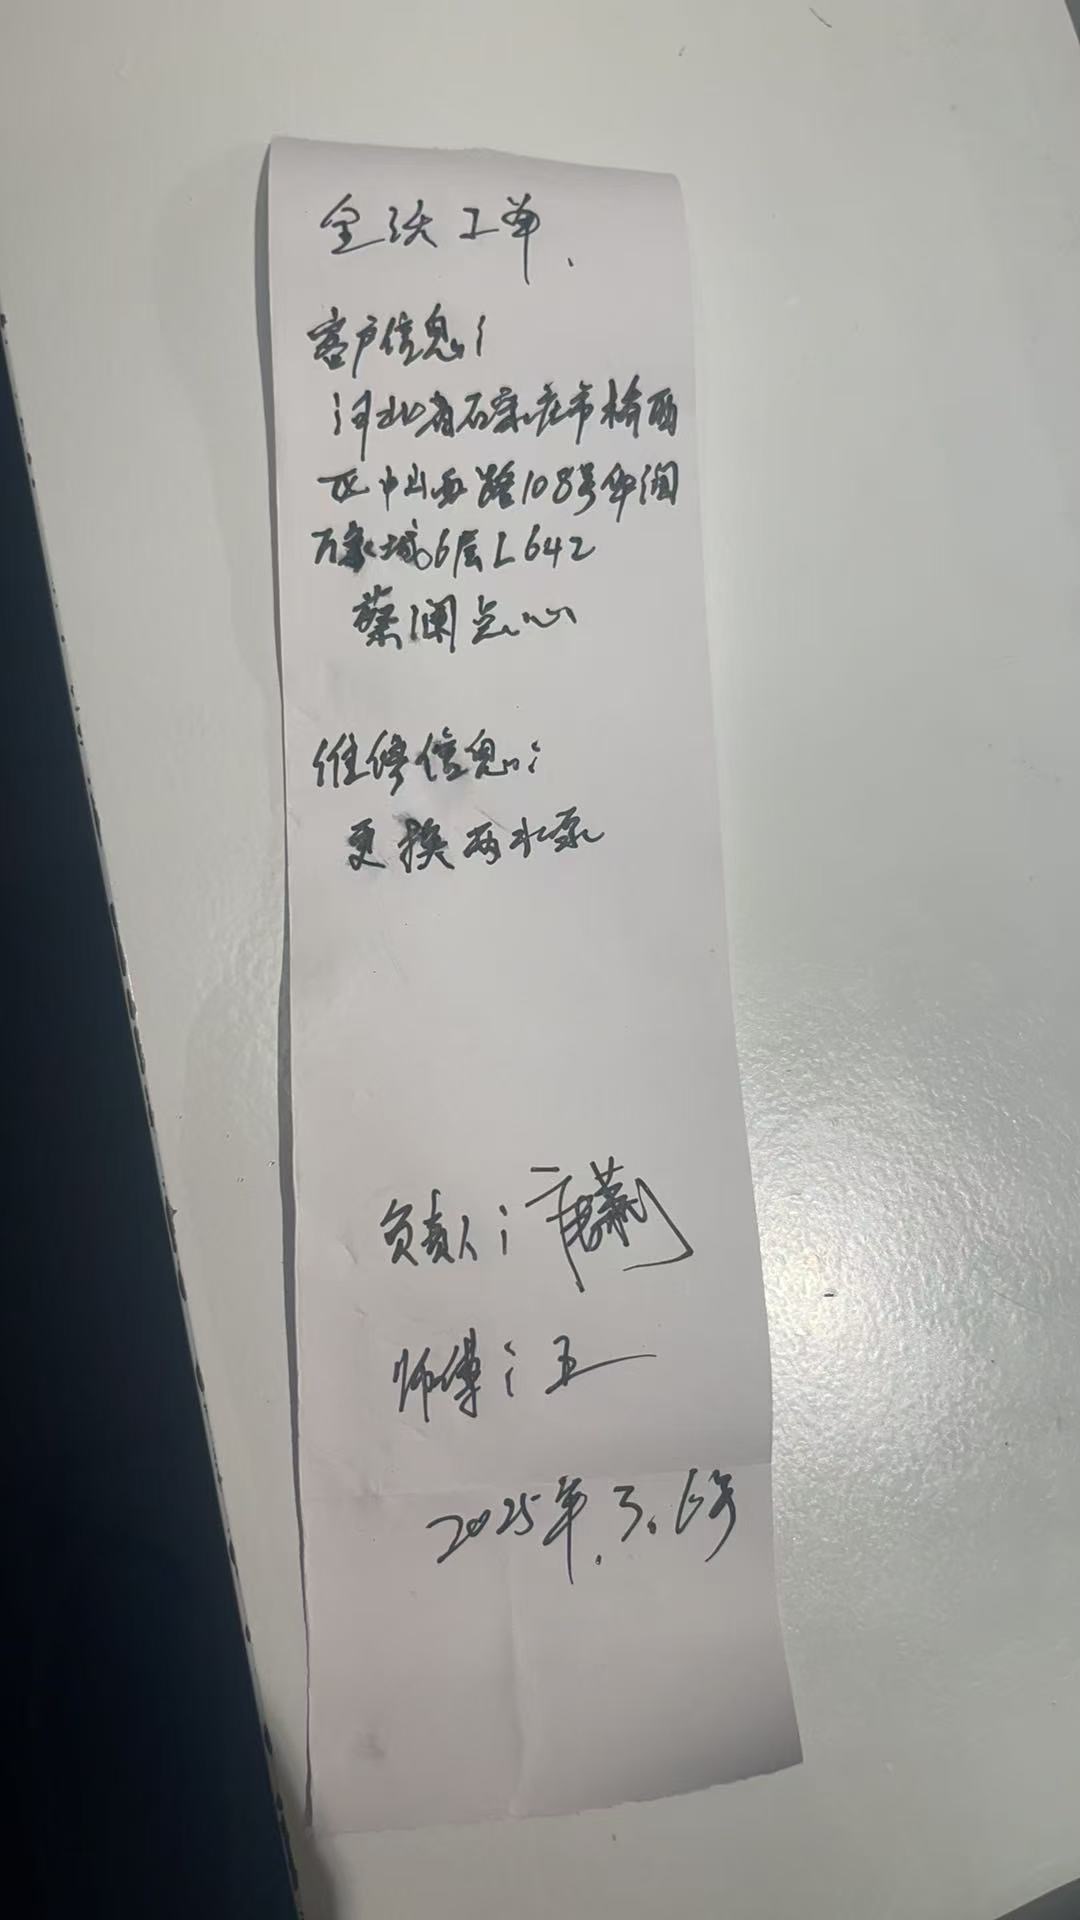 全沃工单.
客户信息:
河北省石家庄市桥西
区中山西路108号华润
万家城6层L642
蔡澜点心
维修信息:
更换两水泵
负责人:
师傅:王
2025年.3.6号